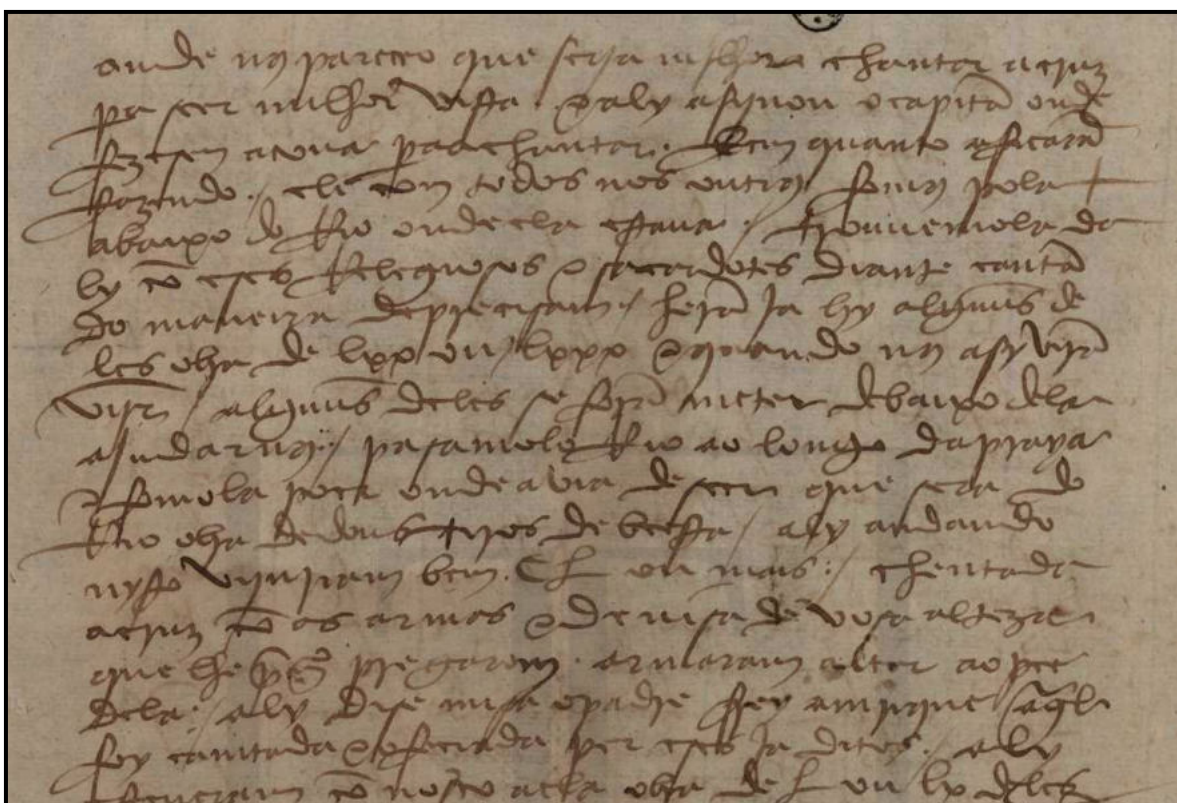 onde nos pareceo que serja mjlhor chantar a cruz
pa seer milhor vista. e aly asynou o capitã onde
fezesem a coua pa a chantar. E em quanto a ficarã
fazendo. / ele com todos nos outros fomos pola +
abaixo do Rio onde ela estaua. / trouuemola da
ly cõ eses Relegiosos e sacerdotes diante cantã
do maneira de precisam. / herã ja hy alguũs de
les obra de lxx ou lxxx e quando nos asy virã
vijr / alguũs deles se forã meter debaixo dela
ajudarnos. / pasamolo Rio ao longo da praya
e fomola poer onde avia de seer que sera do
Rio obra de dous tiros de beesta / aly andando
nysto vijnriam bem. CL ou mais. / chentada
a cruz cõ as armas e deuisa de vosa alteza
que lhe prº pregarom. armaram altar ao pee
dela. / aly dise misa o padre frey amrique / a ql
foy camtada e ofeciada per eses ja ditos. / aly
esteueram cõ nosco a ela obra de L ou lx deles